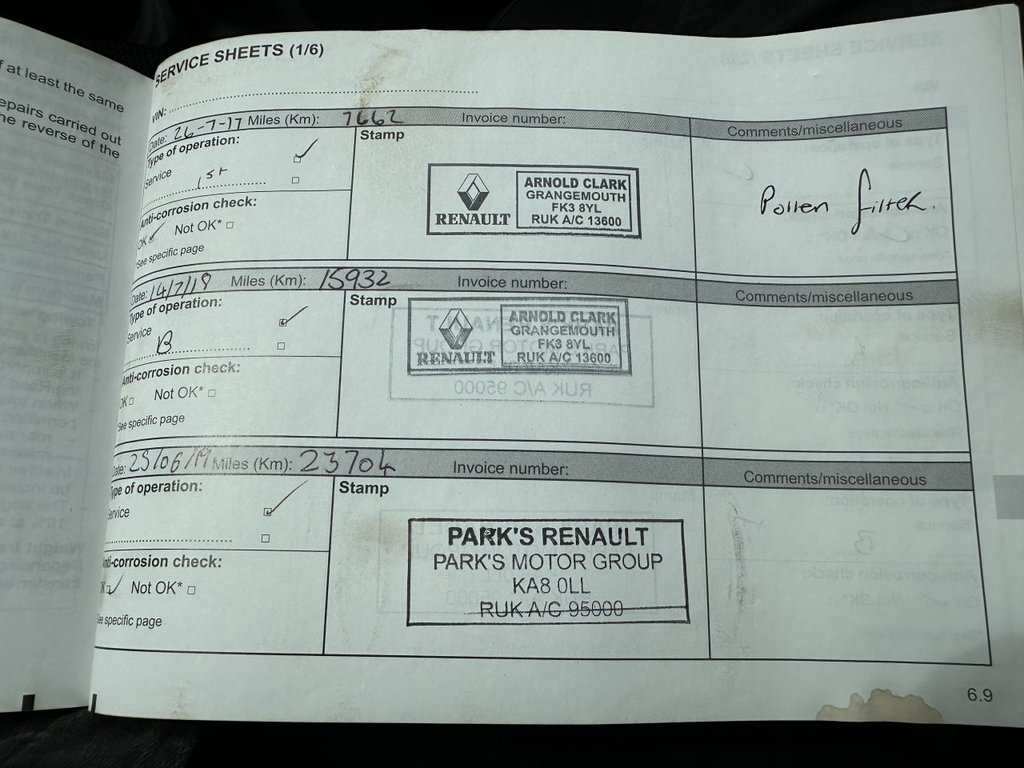 f at least the same
epairs carried out
he reverse of the
SERVICE SHEETS (1/6)
VIN:
Date: 26-7-17 Miles (Km): 7662 Invoice number: Comments/miscellaneous
Type of operation: Stamp
Service
1st
Anti-corrosion check:
OK Not OK*
See specific page
RENAULT
ARNOLD CLARK
GRANGEMOUTH
FK3 8YL
RUK A/C 13600
Pollen filter.
Date: 14/7/18 Miles (Km): 15932 Invoice number: Comments/miscellaneous
Type of operation: Stamp
Service
B
Anti-corrosion check:
OK Not OK*
See specific page
RENAULT
ARNOLD CLARK
GRANGEMOUTH
FK3 8YL
RUK A/C 13600
Date: 25/06/19 Miles (Km): 23704 Invoice number: Comments/miscellaneous
Type of operation: Stamp
Service
nti-corrosion check:
K Not OK*
ee specific page
PARK'S RENAULT
PARK'S MOTOR GROUP
KA8 0LL
RUK A/C 95000
6.9